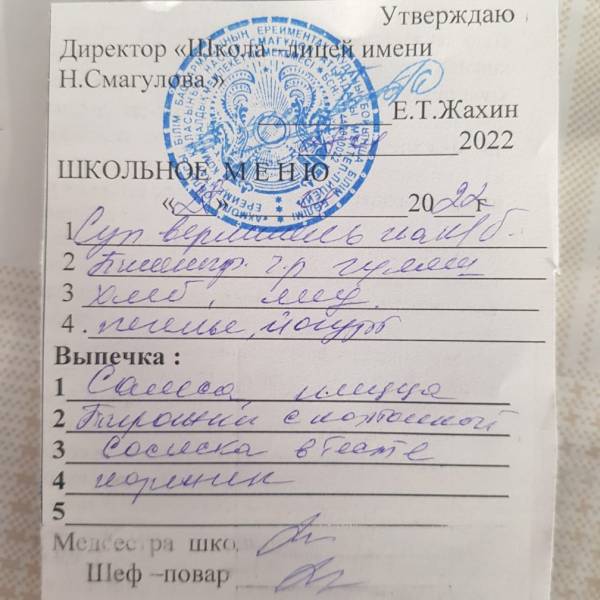 Утверждаю
Директор «Школа –лицей имени
Н.Смагулова »
Е.Т.Жахин
2022
ШКОЛЬНОЕ МЕНЮ
« » 2022 г
1 Суп вермишель на к/б.
2 гр гуляш
3 хлеб,
4. печенье, йогурт
Выпечка :
1 Самса, пицца
2 Пирожки с картошкой
3 Сосиска в тесте
4 коржик
5
Медсестра шко
Шеф –повар